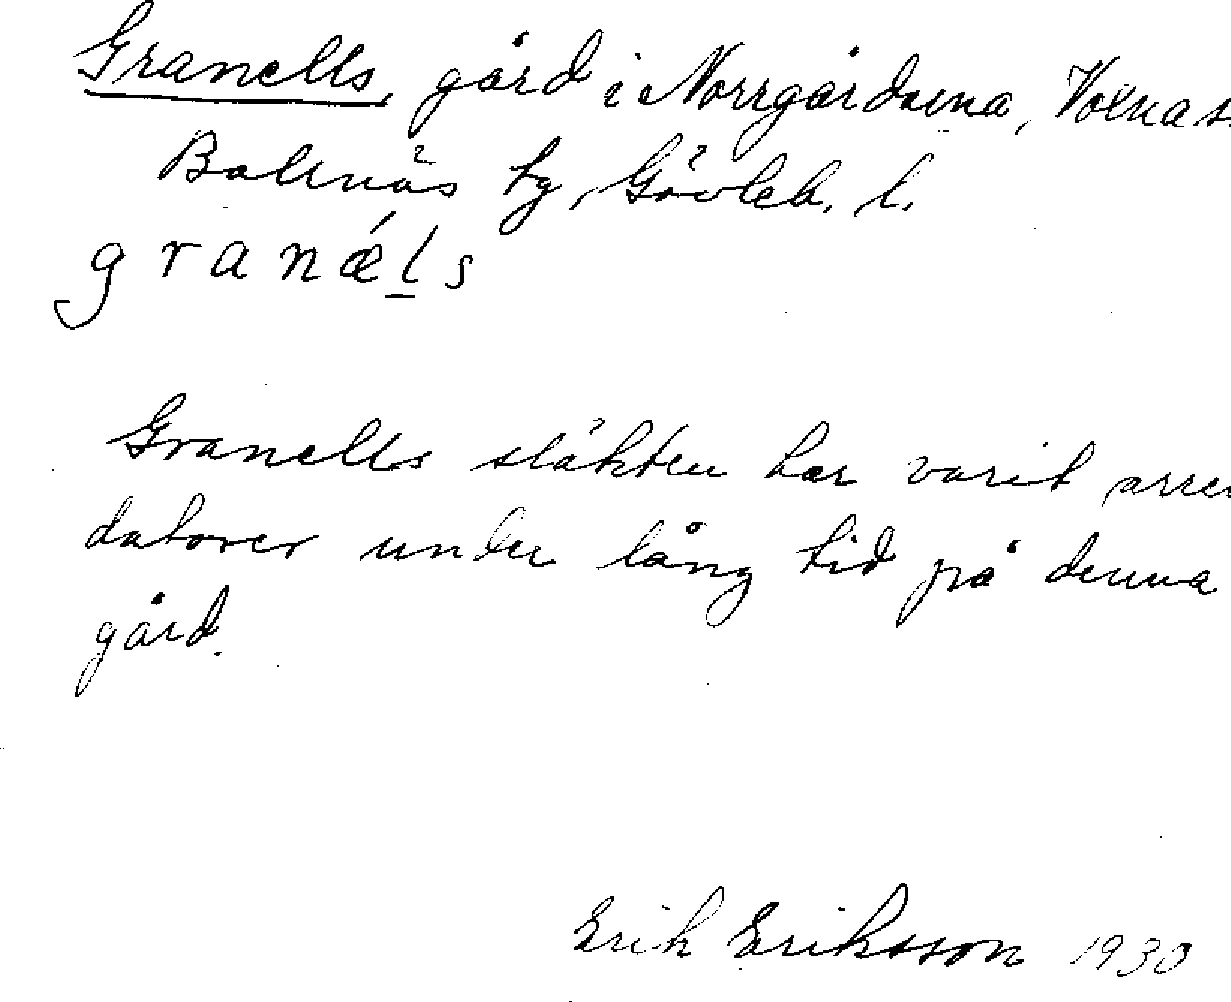 Granells, gård i Norrgårdarna, Voxna s.
Bollnäs tg, Gävleb. l.
granǽls
Granells släkten har varit arren
datorer under lång tid på denna
gård.
Erik Eriksson 1930